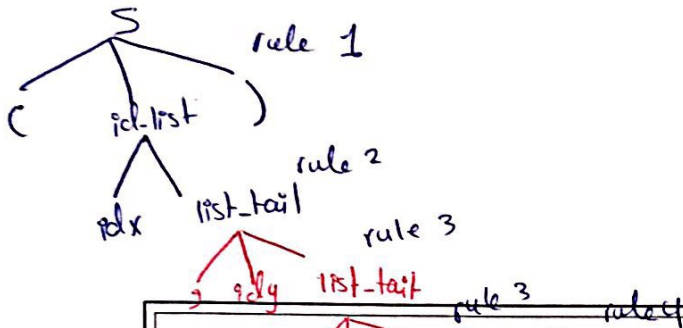 S
rule 1
( id-list )
rule 2
idx list-tail
rule 3
, idy list-tail
rule 3 rule 4